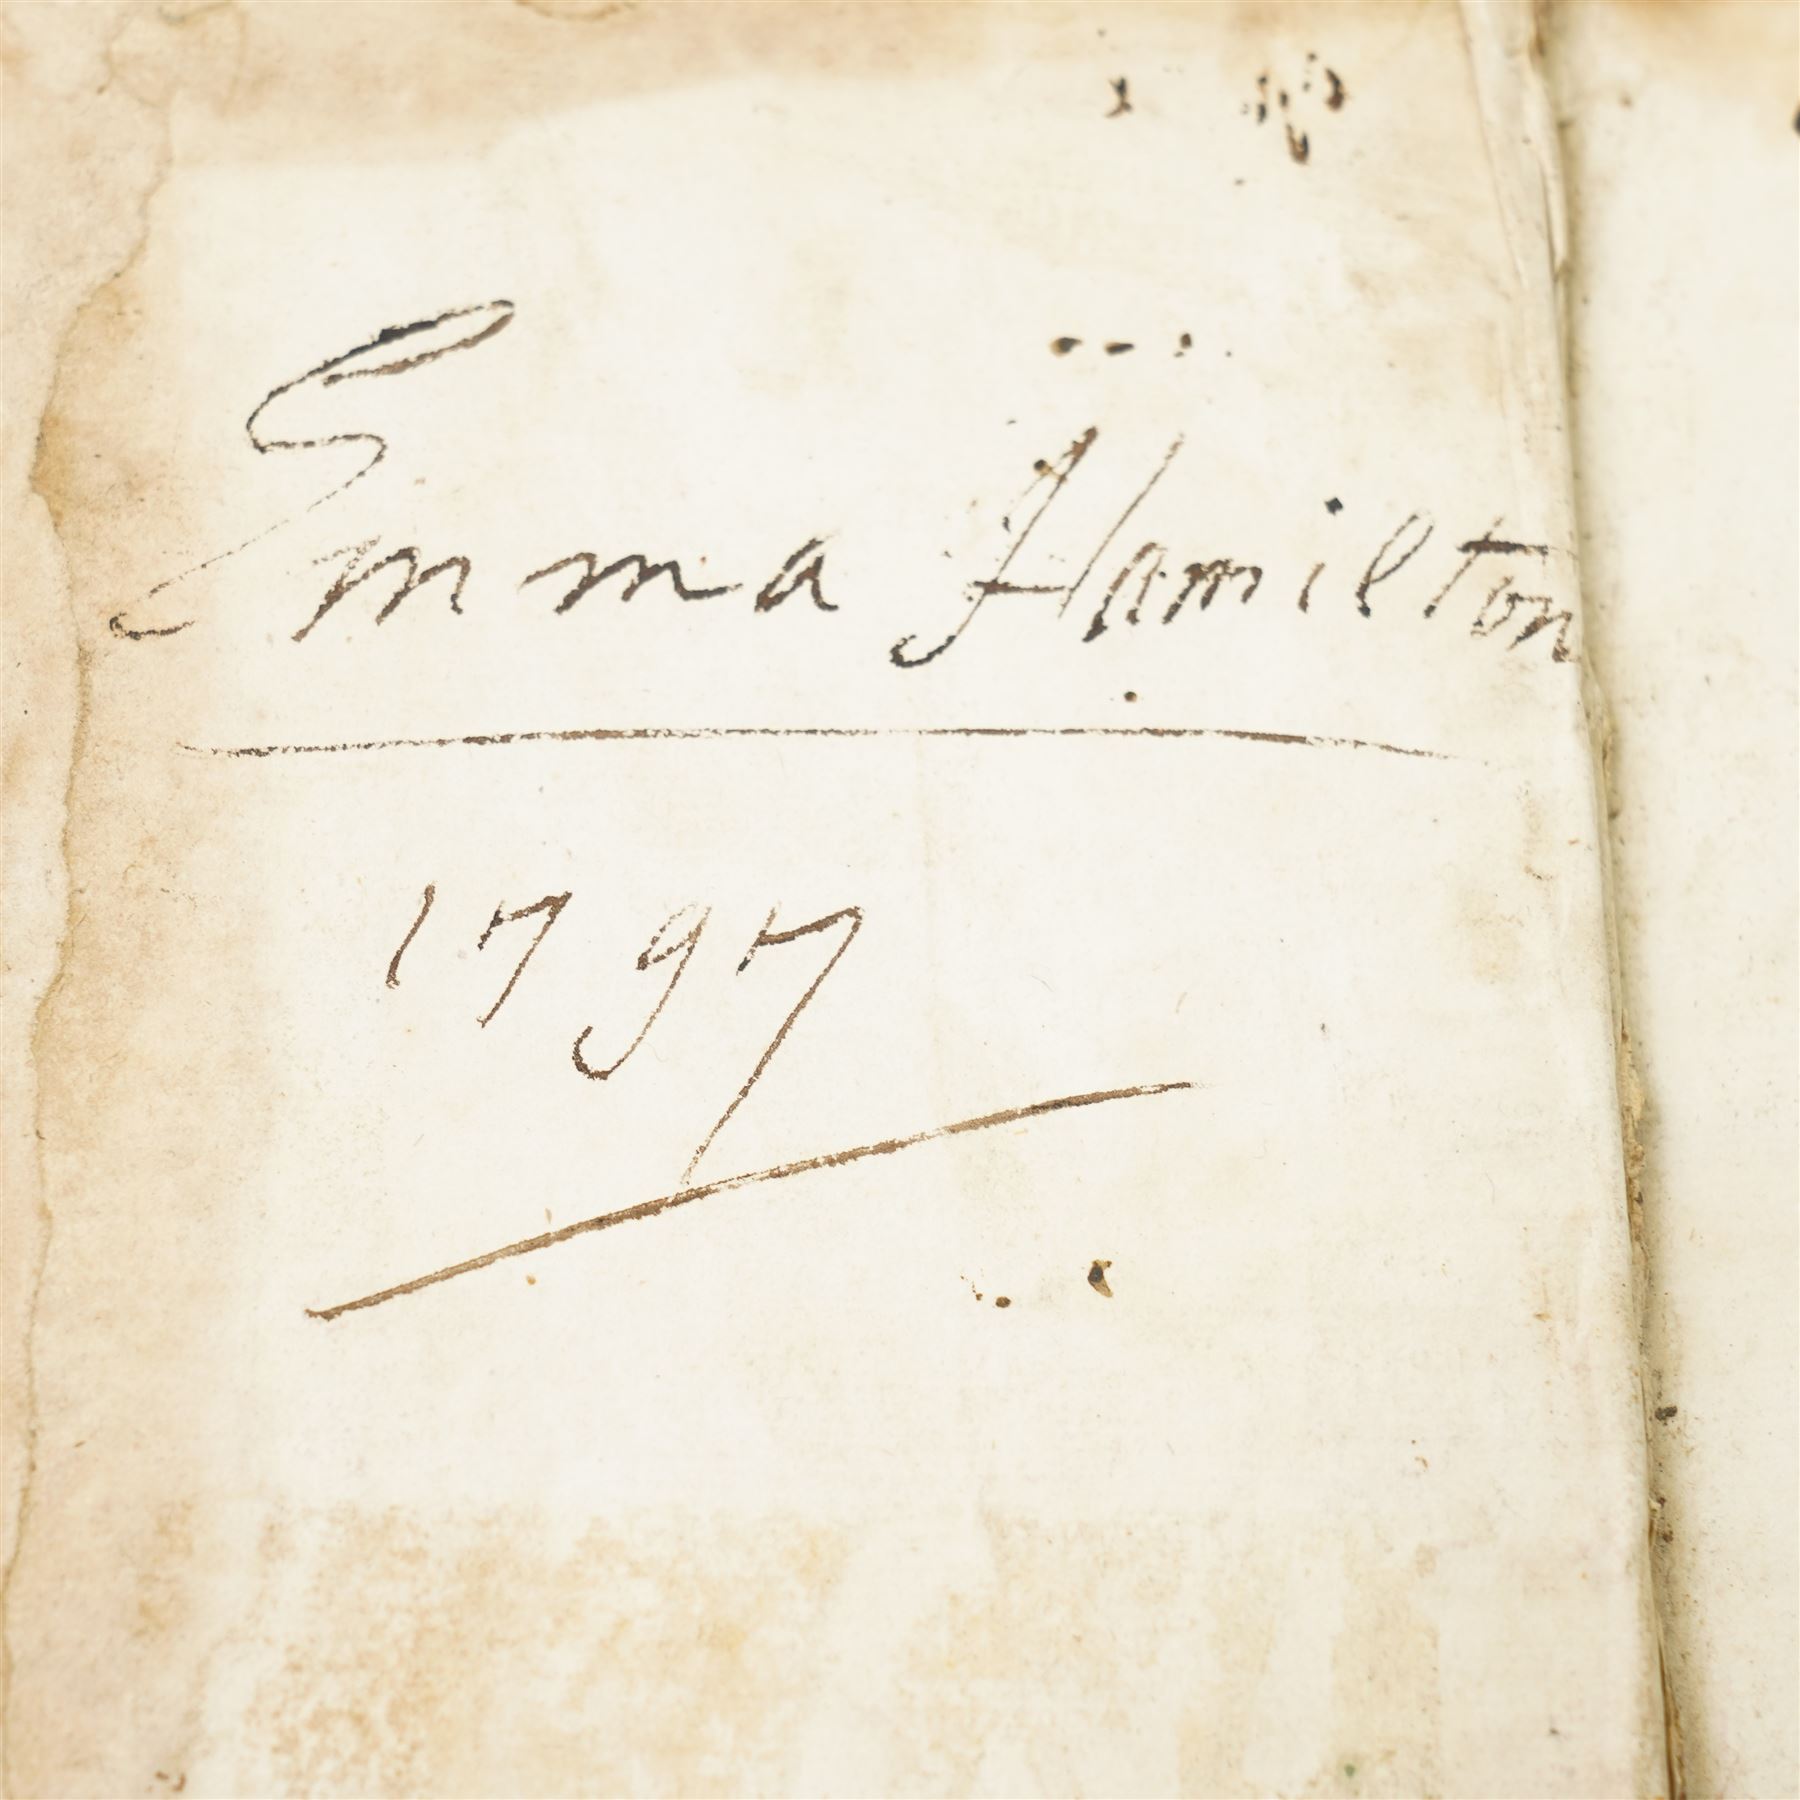 Emma Hamilton
1797